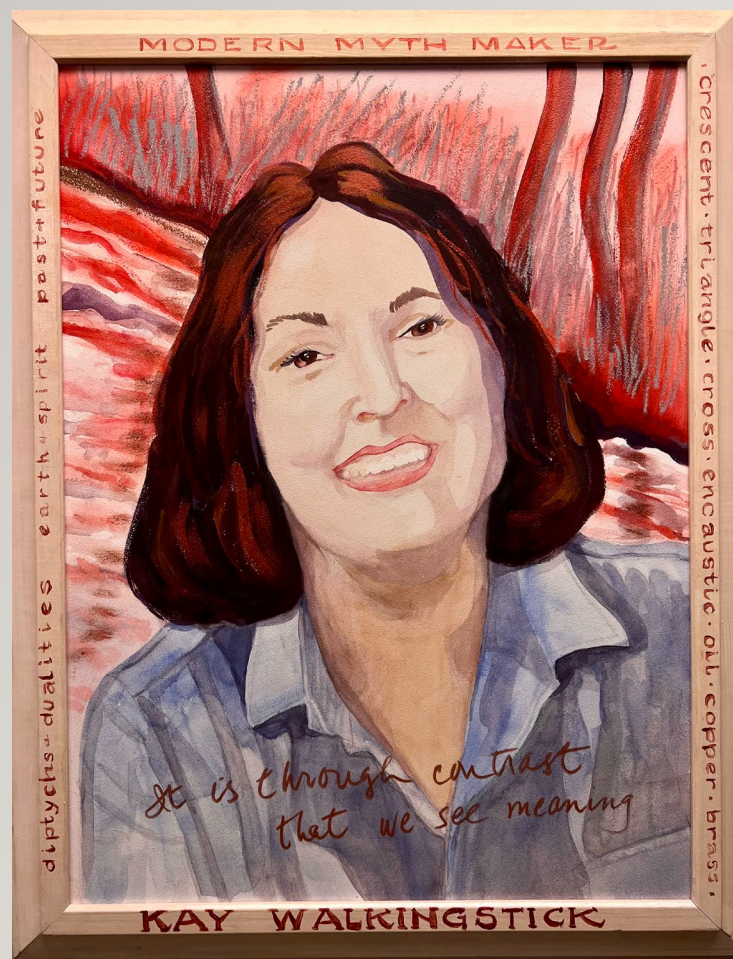 MODERN MYTH MAKER
diptychs + dualities earth + spirit past + future
crescent · triangle · cross · encaustic · oil · copper · brass ·
It is through contrast
that we see meaning
KAY WALKINGSTICK